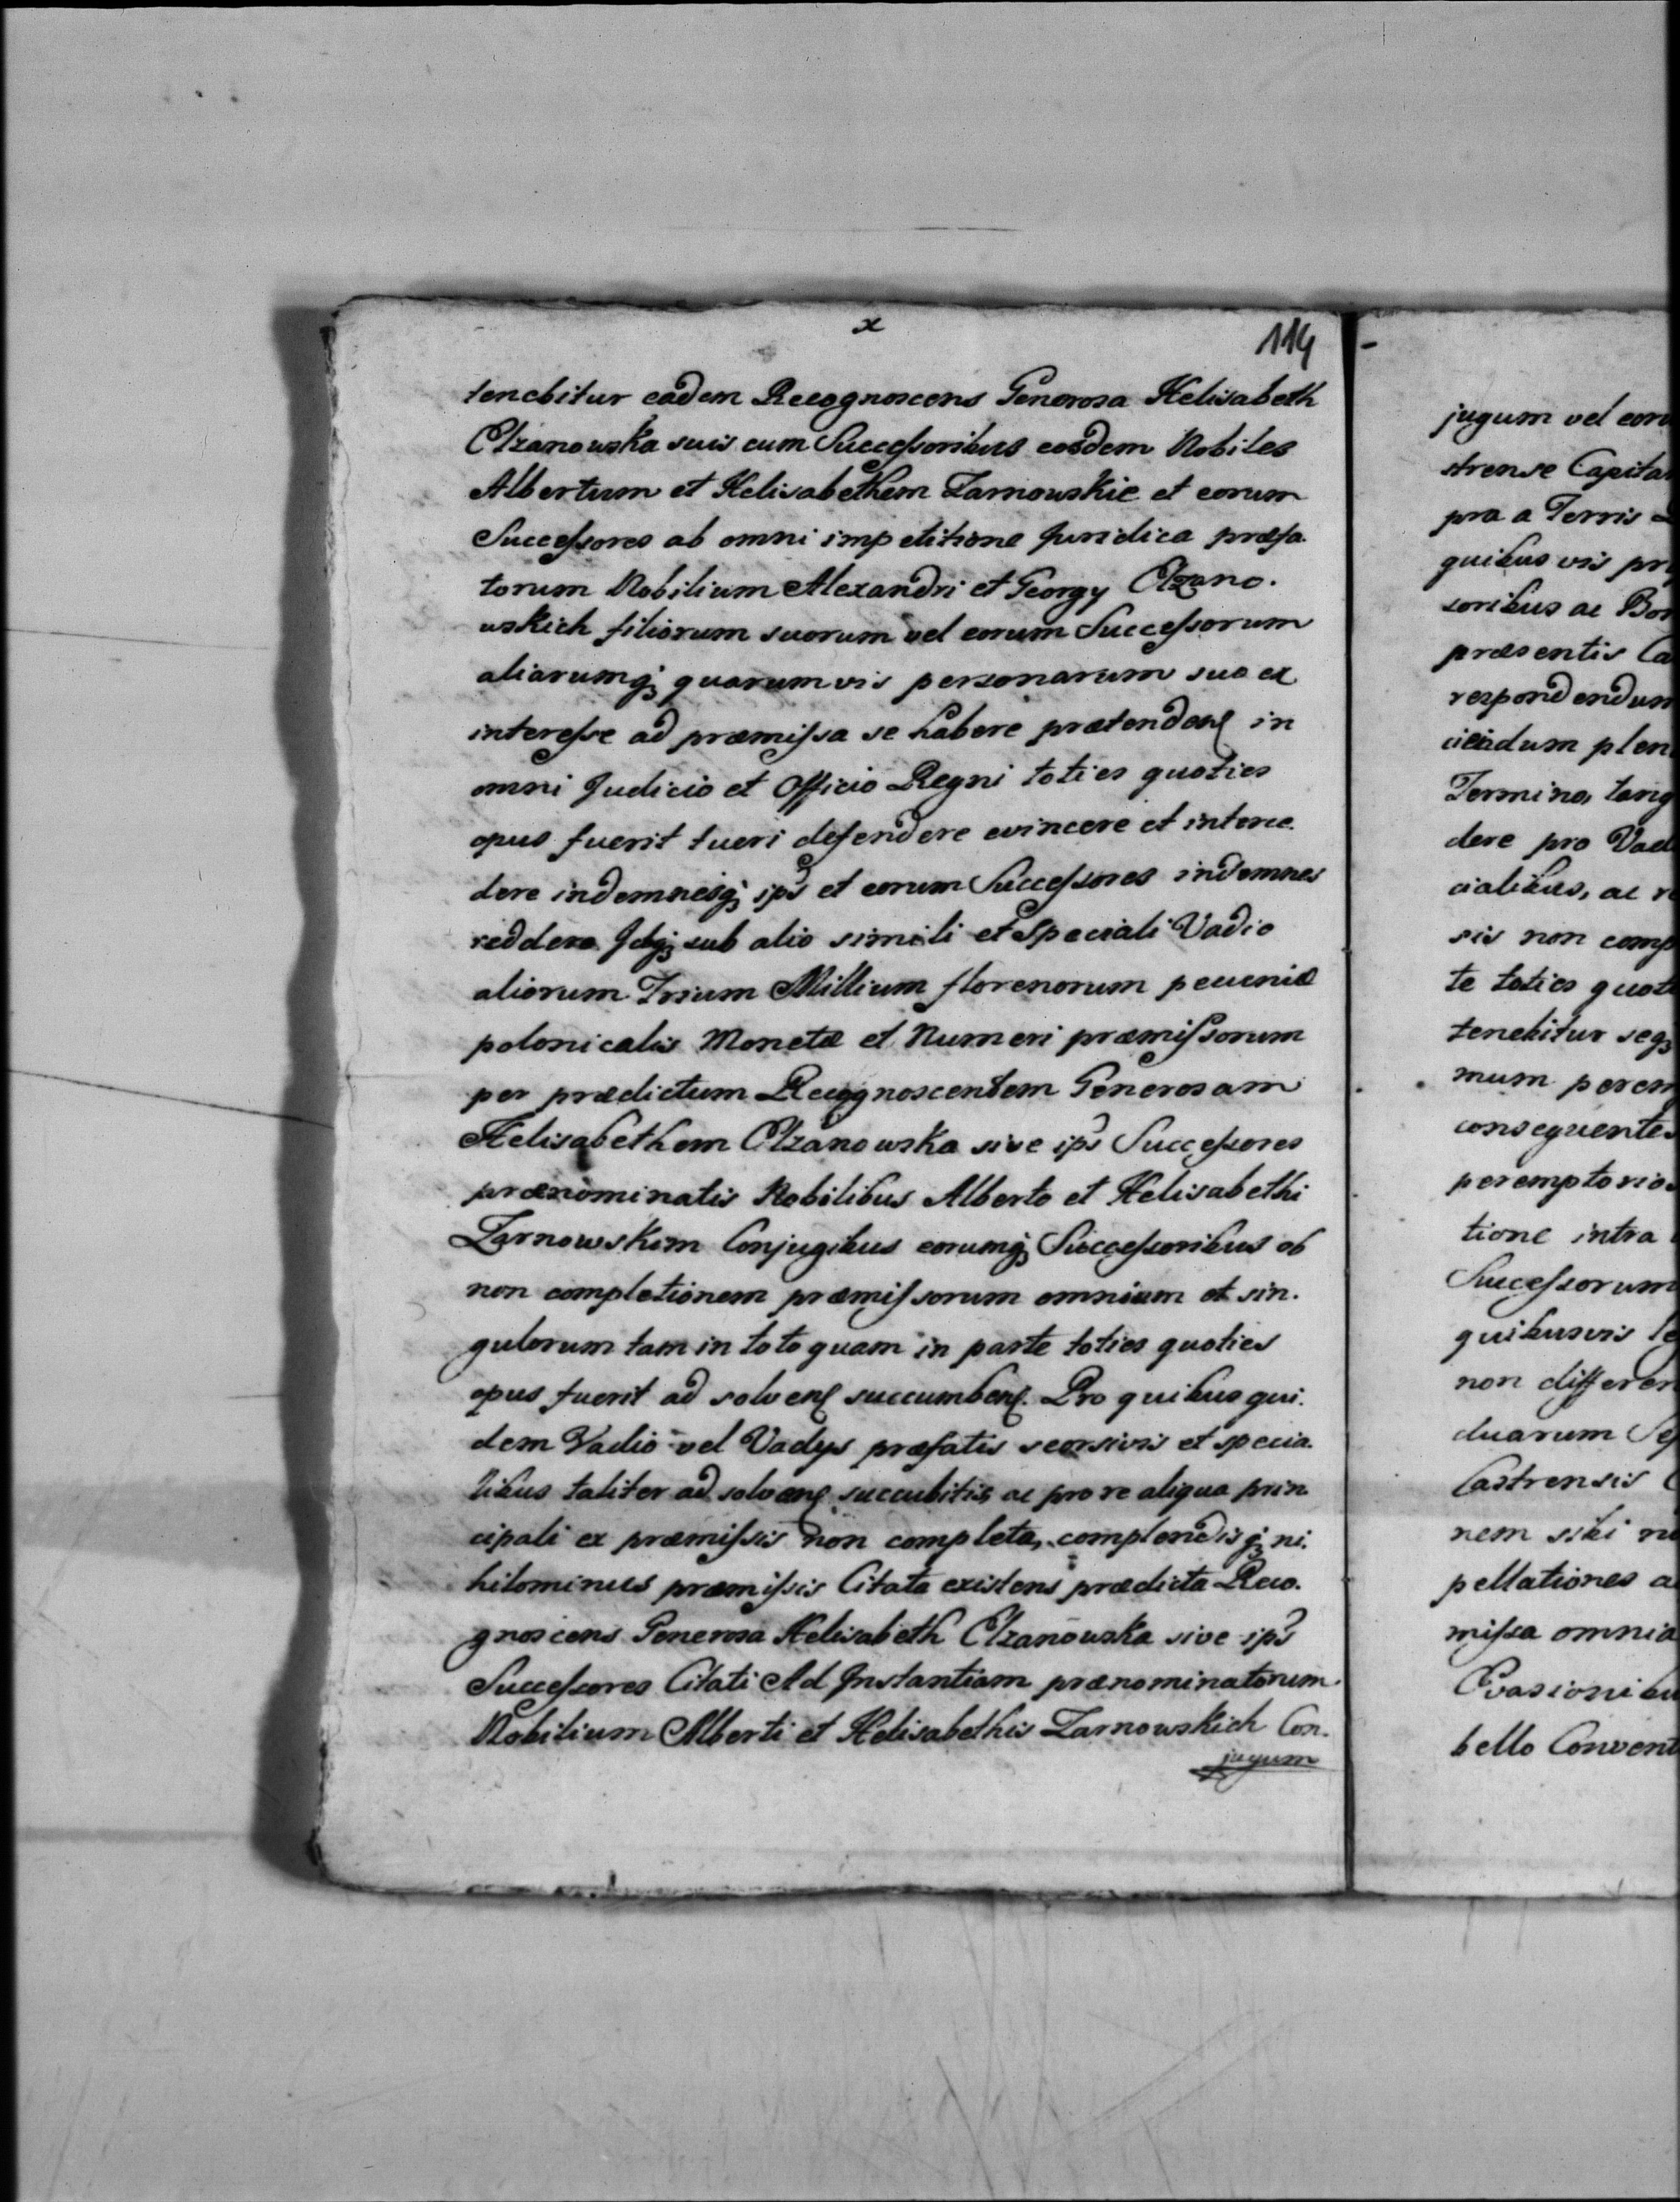 x
114
tenebitur eadem Recognoscens Generosa Helisabeth
Olzanowska suis cum Successoribus eosdem Nobiles
Albertum et Helisabethem Zarnowskie et eorum
Successores ab omni impetitione Juridica præfa-
torum Nobilium Alexandri et Georgy Olzano-
wskich filiorum suorum vel eorum Successorum
aliarumq; quarumvis personarum sua ex
interesse ad præmissa se habere prætenden in
omni Judicio et Officio Regni toties quoties
opus fuerit tueri defendere evincere et interce-
dere indemnesq; ips et eorum Successores indemnes
reddere Idq; sub alio simili et Speciali Vadio
aliorum Trium Millium florenorum pecuniæ
polonicalis Monetæ et Numeri præmissorum
per prædictum Recognoscentem Generosam
Helisabethem Olzanowska sive ips Successores
prænominatis Nobilibus Alberto et Helisabethi
Zarnowskim Conjugibus eorumq; Successoribus ob
non completionem præmissorum omnium et sin-
gulorum tam in toto quam in parte toties quoties
opus fuerit ad solven succumben. Pro quibus qui-
dem Vadio vel Vadys præfatis seorsivis et specia-
libus taliter ad solven succubitis ac pro re aliqua prin-
cipali ex præmissis non completa, complendisq; ni-
hilominus præmissis Citata existens prædicta Reco-
gnoscens Generosa Helisabeth Olzanowska sive ips
Successores Citati Ad Instantiam prænominatorum
Nobilium Alberti et Helisabethis Zarnowskich Con-
jugum
jugum vel eoru
strense Capita
pra a Terris
quibus vis pr
soribus ac Bon
præsentis Ca
respondendum
ciendum plen
Termino, tanq
dere pro Vad
cialibus, ac re
sis non comp
te toties quot
tenebitur seq;
mum perem
consequentes
peremptorios
tione intra
Successorum
quibusvis le
non differen
duarum Se
Castrensis
nem sibi
pellationes a
missa omnia
Evasionibu
bello Convent